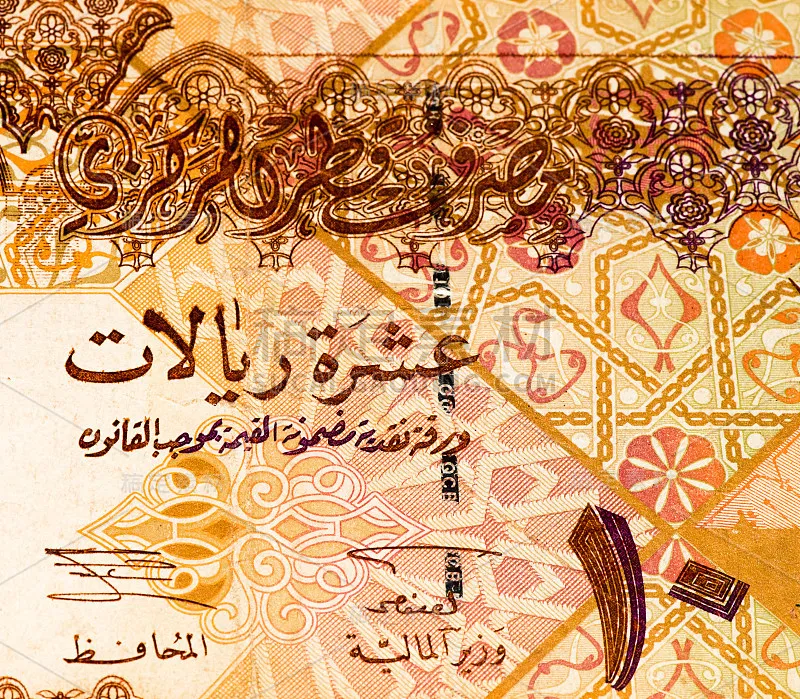 مصرف قطر المركزي
عشرة ريالات
ورقة نقدية مضمونة القيمة بموجب القانون
١٠
المحافظ
وزير المالية